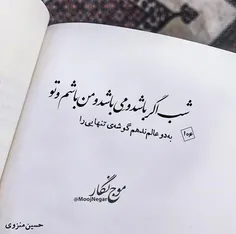 شب اگر باشد و می باشد و من باشم و تو
به دو عالم ندهم گوشه‌ی تنهایی را
موج نگار
@MoojNegar
حسین منزوی